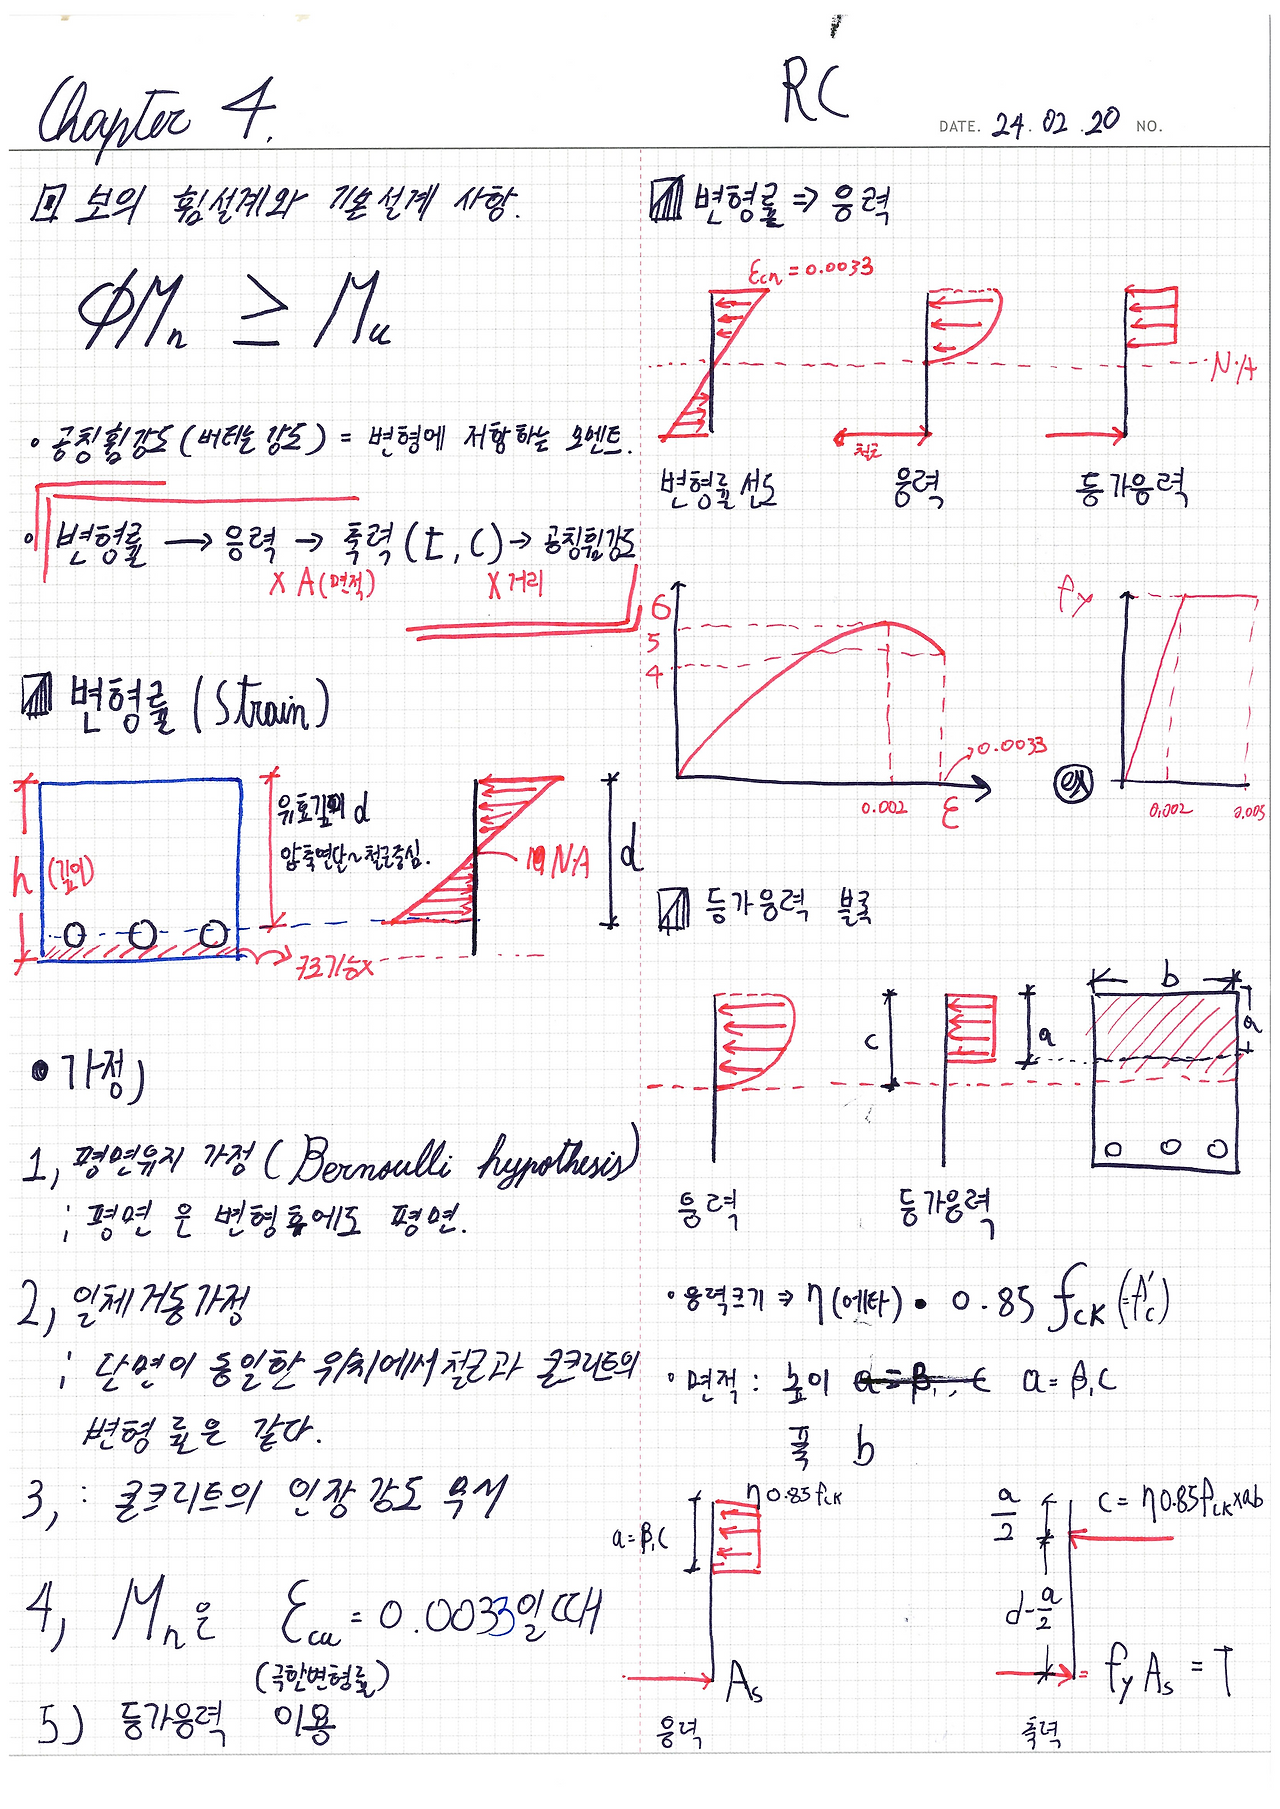 Chapter 4.
RC
DATE. 24. 02. 20 NO.
보의 휨설계와 기본설계 사항.
ΦMn ≥ Mu
• 공칭휨강도(버티는강도) = 변형에 저항하는 모멘트.
• 변형률 → 응력 → 축력(t, C) → 공칭휨강도
X A(면적) X 거리
변형률(Strain)
h (깊이)
유효깊이 d
압축연단~철근중심.
N·A
d
구조기능x
• 가정)
1, 평면유지 가정(Bernoulli hypothesis)
; 평면은 변형후에도 평면.
2, 일체거동가정
; 단면이 동일한 위치에서 철근과 콘크리트의
변형률은 같다.
3, : 콘크리트의 인장강도 무시
4, Mn은 εcu = 0.0033일때
(극한변형률)
5) 등가응력 이용
변형률 ⇒ 응력
εcu = 0.0033
N·A
철근
변형률선도 응력 등가응력
6
5
4
0.002 ε
0.0033
fy
ex
0.002 0.005
등가응력 블록
c
a
b
a
응력 등가응력
• 응력크기 ⇒ η(에타) • 0.85 fck (=f'c)
• 면적 : 높이 a = β1 . c a = β1c
폭 b
η0.85fck
a=β1c
As
응력
a/2
c = η0.85fck×ab
d-a/2
= fy As = T
축력